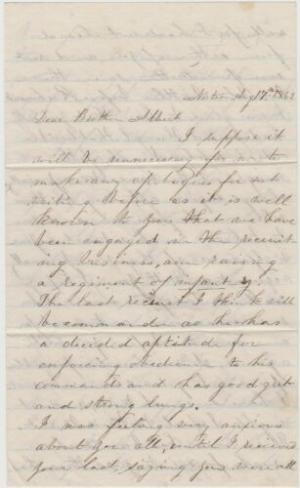 Aug 17th 1862
Dear Brother Albert
I suppose it
will be unnecessary for me to
make any apologies for not
writing before as it is well
known to you that we have
been engaged in the recruit
ing business, am raising
a regiment of infantry.
The last recruit I think will
be commander as he has
a decided aptitude for
enforcing obedience to his
commands and has good grit
and strong lungs.
I was feeling very anxious
about you all, until I received
your last saying you were all